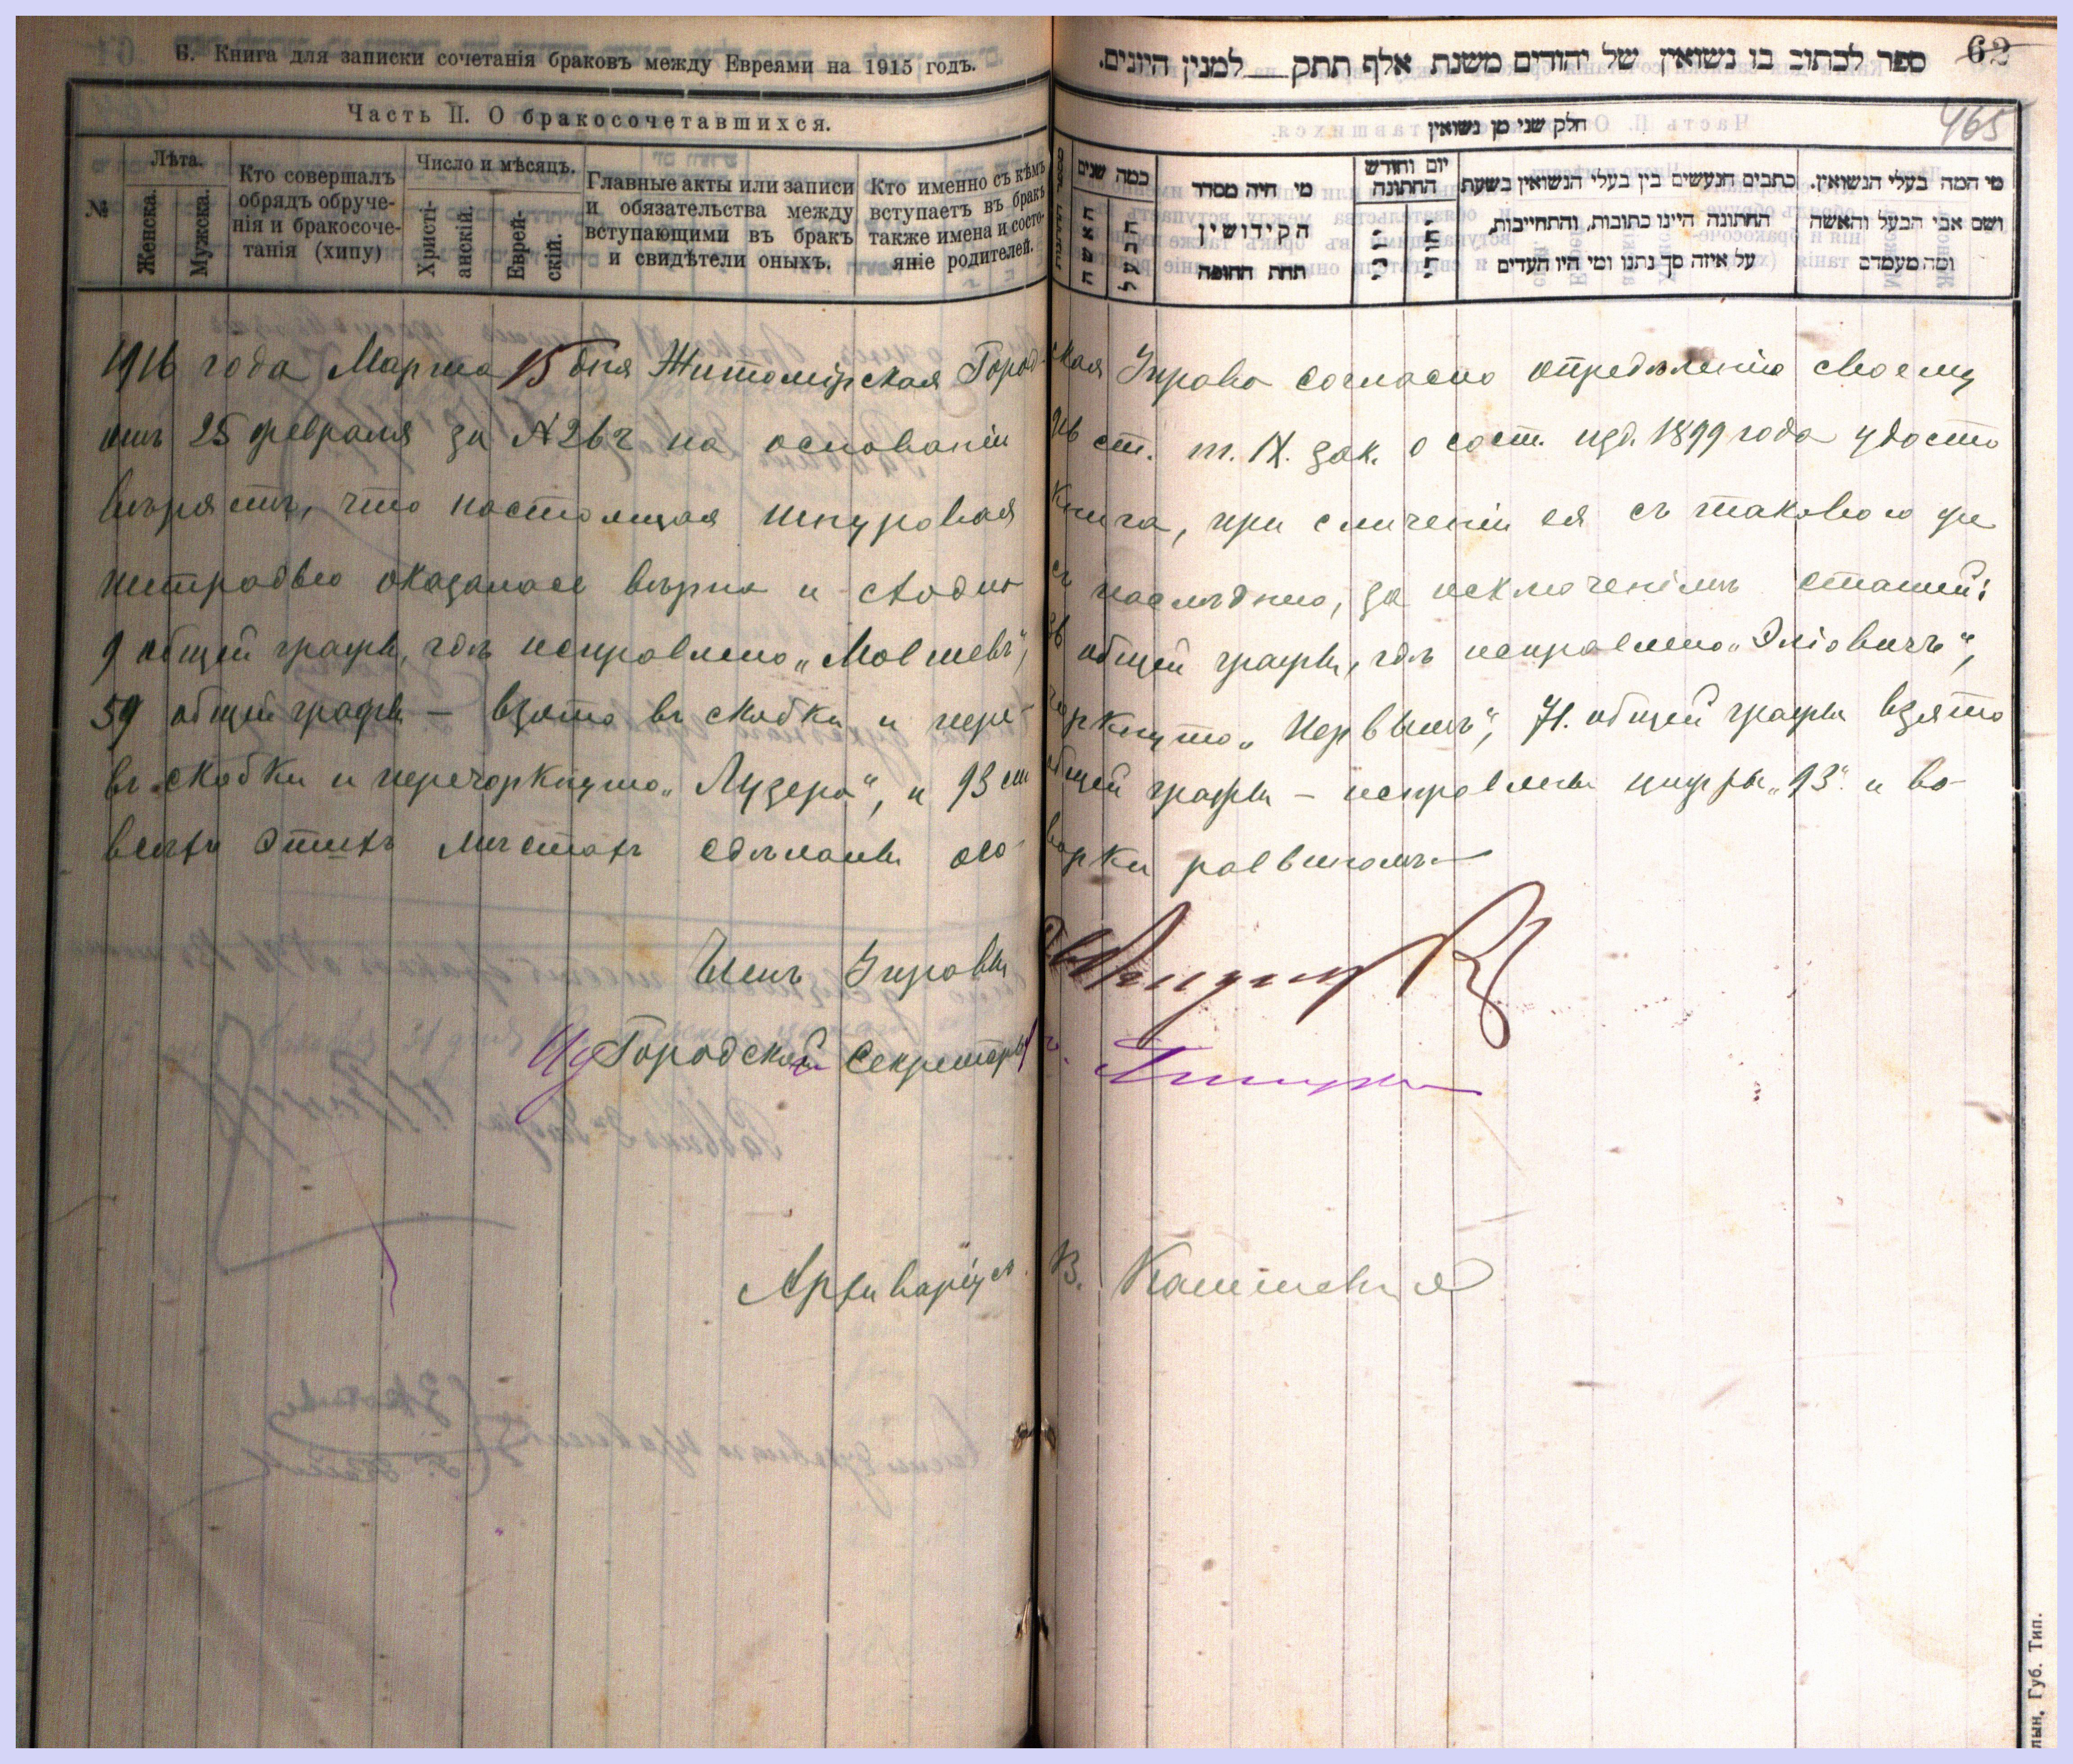 Б. Книга для записки сочетанія браковъ между Евреями на 1915 годъ.
Часть II. О бракосочетавшихся.
№
Лѣта.
Женска.
Мужска.
Кто совершалъ
обрядъ обруче-
нія и бракосоче-
танія (хипу)
Число и мѣсяцъ.
Христі-
анскій.
Еврей-
скій.
Главные акты или записи
и обязательства между
вступающими въ бракъ
и свидѣтели оныхъ.
Кто именно съ кѣмъ
вступаетъ въ бракъ
также имена и состо-
яніе родителей.
62
ספר לכתוב בו נשואין של יהודים משנת אלף תתק למנין היונים.
465
חלק שני מן נשואין
כמה שנים
האשה
הבעל
מי היה מסדר
הקידושין
תחת החופה
יום וחודש
החתונה
כתבים הנעשים בין בעלי הנשואין בשעת
החתונה היינו כתובות, והתחייבות,
על איזה סך נתנו ומי היו העדים
מי המה בעלי הנשואין.
ושם אבי הבעל והאשה
ומה מעמדם
1916 года Марта 15 дня Житомірская Город-ская Управа согласно опредѣленію своему
отъ 25 февраля за № ст. т. IX. зак. о сост. изд. 1899 года удосто
вѣряетъ, что настоящая шнуровая книга, при сличеніи ея съ таковою же
тетрадью оказалась вѣрна и сходна съ послѣднею, за исключеніемъ статей:
9 общей графы, гдѣ исправлено „Мовшевъ“, общей графы, гдѣ исправлено „Эліовичъ“,
59 общей графы – взято въ скобки и пере-черкнуто „Первымъ“, 71. общей графы взято
въ скобки и перечеркнуто „Лузера“, и 93 общей графы – исправлены цифры „93“. и во
всѣхъ этихъ мѣстахъ сдѣланы ого-ворки раввиномъ
Членъ Управы
Ид Городской Секретарь
Архиваріусъ В.
лын. Губ. Тип.